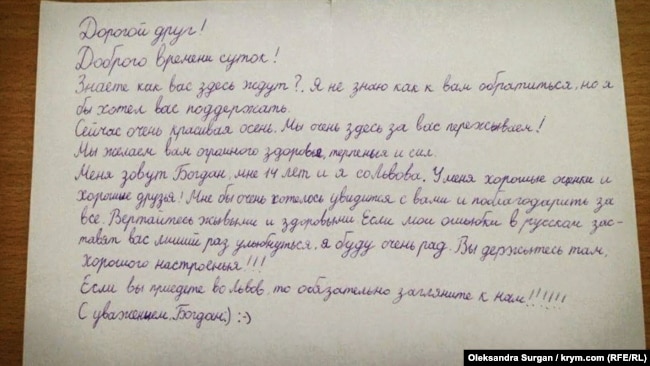 Дорогой друг!
Доброго времени суток!
Знаете как вас здесь ждут?. Я не знаю как к вам обратиться, но я
бы хотел вас поддержать.
Сейчас очень красивая осень. Мы очень здесь за вас пережываем!
Мы желаем вам огромного здоровья, терпенья и сил.
Меня зовут Богдан, мне 14 лет и я со Львова. У меня хорошые оценки и
хорошые друзья! Мне бы очень хотелось увидится с вами и поблагодарить за
все. Вертайтесь жывыми и здоровыми Если мои ошыбки в русском зас-
тавят вас лишний раз улыбнуться, я буду очень рад. Вы держытесь там,
хорошого настроенья!!!
Если вы приедете во Львов, то обязательно загляните к нам!!!!!!
С уважением, Богдан:) :-)
Oleksandra Surgan / krym.com (RFE/RL)